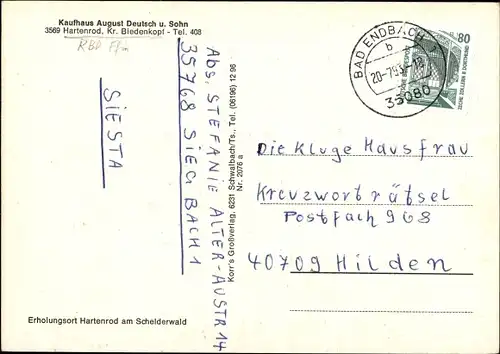 Kaufhaus August Deutsch u. Sohn
3569 Hartenrod, Kr. Biedenkopf - Tel. 408
RBD Ffm
SIESTA
35768 SIEGBACH 1
Abs. STEFANIE ALTER-AUSTR 14
Korr's Großverlag, 6231 Schwalbach/Ts., Tel. (06196) 12 96
Nr. 2076 a
BAD ENDBACH 1
b
20-7.93
35080
80
ZECHE ZOLLERN II DORTMUND
Die Kluge Hausfrau
Kreuzworträtsel
Postfach 968
40709 Hilden
Erholungsort Hartenrod am Schelderwald